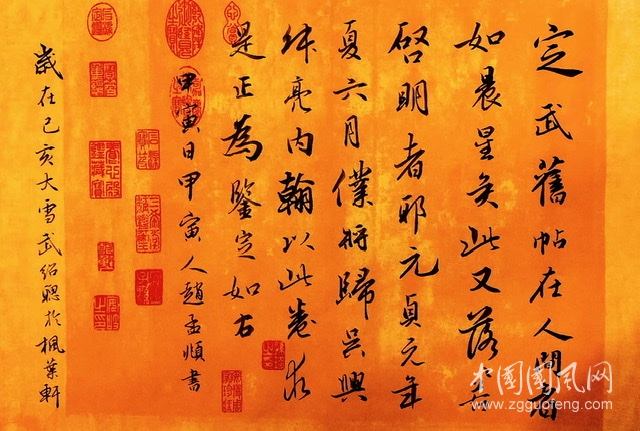 定武舊帖在人間者
如晨星矣此又落〻若
啓明者邪元貞元年
夏六月僕將歸吳興
叔亮内翰以此卷求
是正為鑒定如右
甲寅日甲寅人趙孟頫書
歲在己亥大雪武紹聰於楓葉軒
中國國风网
www.zgguofeng.com